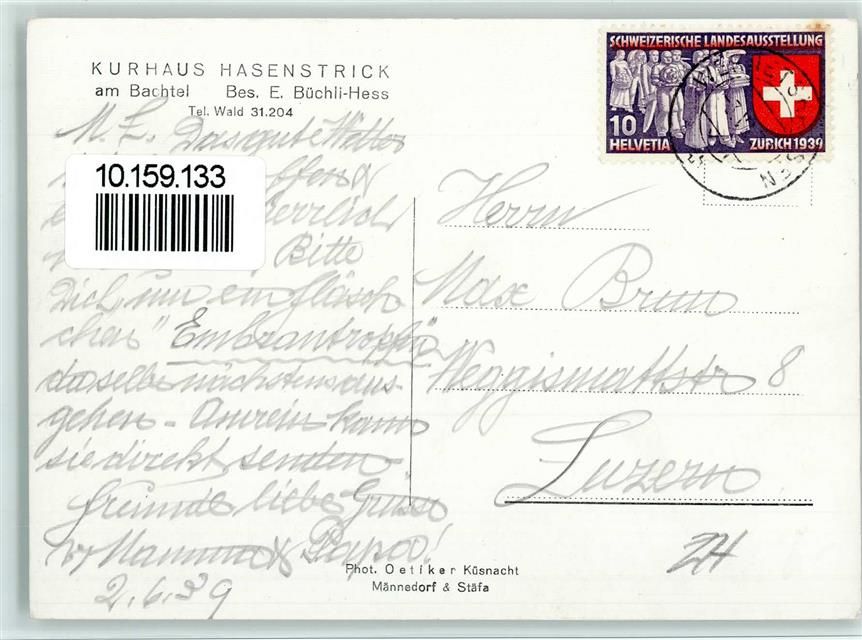 KURHAUS HASENSTRICK
am Bachtel Bes. E. Büchli-Hess
Tel. Wald 31.204
M. L. Das gute Wetter
10.159.133
herrlich
Bitte
Dich, um ein fläsch-
chen "Embrantropfen"
da selbe nächstens aus-
gehen - Anrein kann
sie direkt senden
freundl liebe Grüsse
v/ Mamma & Papa!
2.6.39
SCHWEIZERISCHE LANDESAUSSTELLUNG
10
HELVETIA
ZÜRICH 1939
Herrn
Max Brun
Weggismattstr 8
Luzern
ZH
Phot. Oetiker Küsnacht
Männedorf & Stäfa